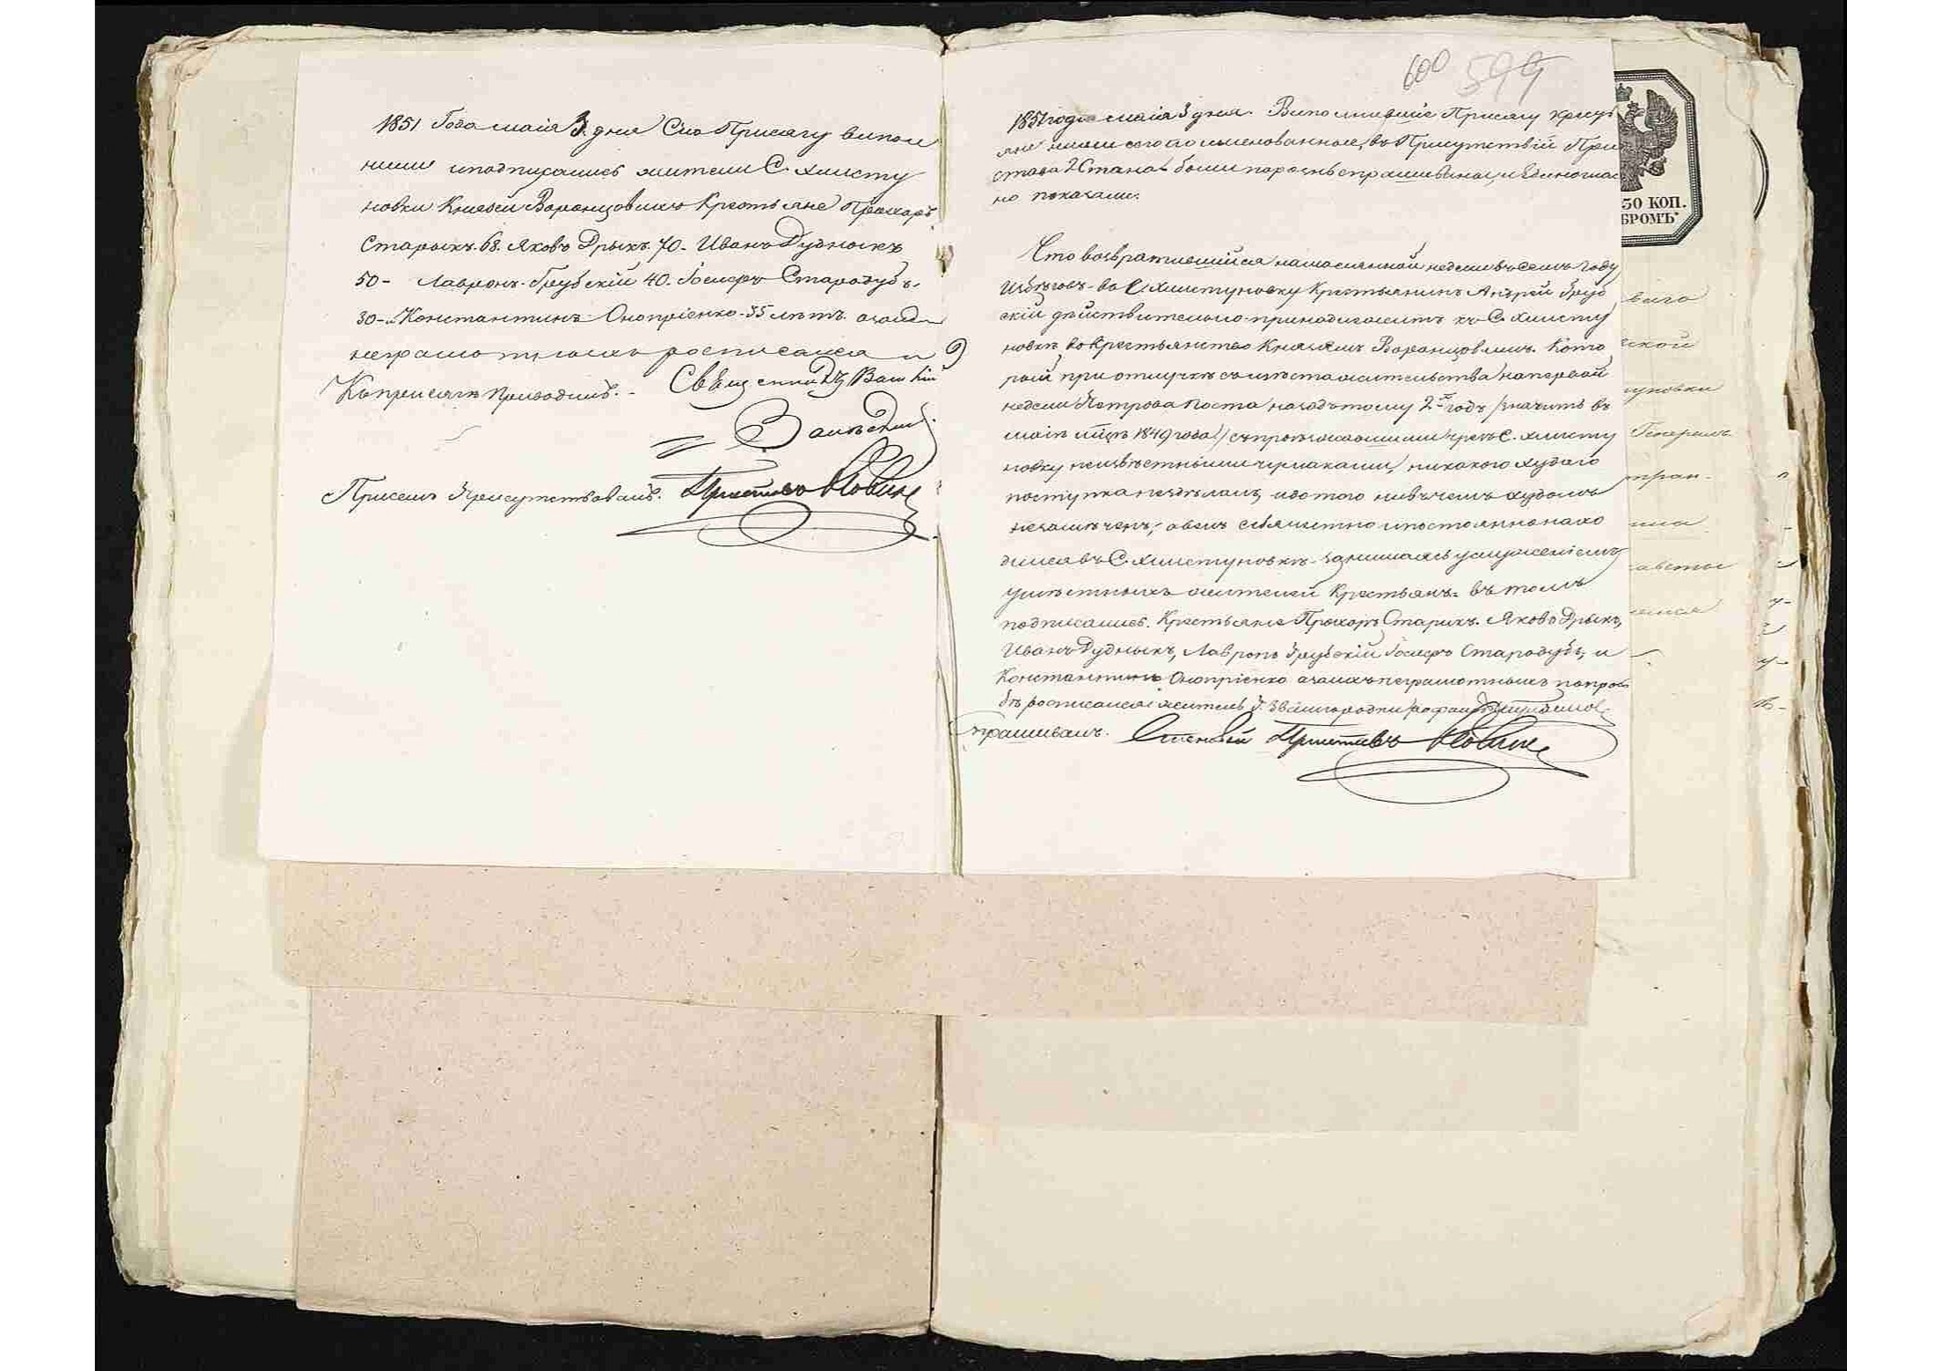 1851 Года маія 3. дня Сію Присягу выпол
нили иподписались жители С. Хлисту
новки Князей Воронцовыхъ Крестьяне Прохоръ
Старыхъ. 68. Яковъ Дрыкъ. 70 - Иванъ Дудныкъ
50 - Лавронъ Грубскій 40. Іосифъ Стародубъ -
30 - Константинъ Оноприенко - 35 лѣтъ. азанихъ
неграмотныхъ росписался
Къ присягѣ Приводилъ. - Священникъ
При семъ Присутствовалъ. Приставъ
600 599
1851 года маія 3 дня. Выполнившіе Присягу крестъ
яне ниже сего поименованные, въ Присутствіи При
става 2 Стана были порознь спрашиваны, и единоглас
но показали:
Что возвратившійся на масляной недели въ семъ Году
Избѣговъ - въ С. Хлистуновку Крестьянинъ Андрей Груб
скій дѣйствительно принадлежитъ къ С. Хлисту
новкѣ въ Крестьянство Князямъ Воронцовымъ. Кото
рый при отлучкѣ съ мѣста жительства на первой
недели Петрова Поста назадъ тому 2й годъ /значитъ въ
маіѣ мцѣ 1849 года!/ съ проѣзжавшими чрезъ С. Хлисту
новку неизвѣстными чумаками, никакого худаго
поступка несдѣлалъ, и до того ни въ чемъ худомъ
незамѣченъ; а велъ себя честно и постоянно нахо
дился въ С. Хлистуновкѣ - занимаясь услуженіемъ
умѣстныхъ жителей Крестьянъ. въ томъ
подписались. Крестьяне Прохоръ Старыхъ. Яковъ Дрыкъ,
Иванъ Дудныкъ, Лавронъ Грубскій Іосифъ Стародубъ, и
Константинъ Оноприенко азанихъ неграмотныхъ попрось
бѣ росписался житель Г. Звенигородки
Спрашивалъ. Становой Приставъ
50 КОП.
БРОМЪ